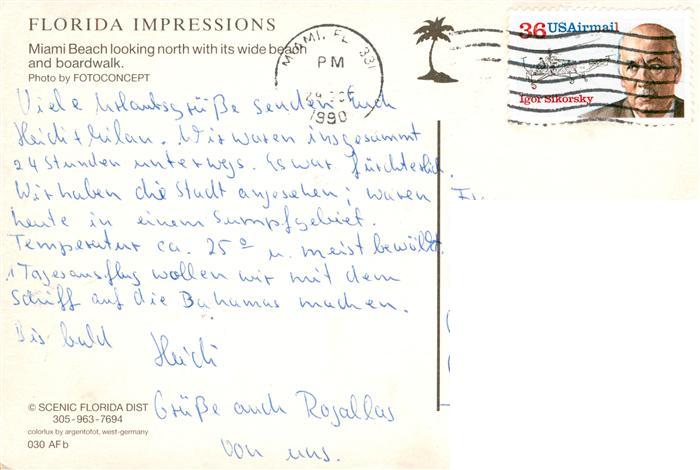 FLORIDA IMPRESSIONS
Miami Beach looking north with its wide beach
and boardwalk.
Photo by FOTOCONCEPT
MIAMI, FL 331
PM
1990
36 USAirmail
Igor Sikorsky
Viele Urlaubsgrüße senden Euch
Heidi + Milan. Wir waren insgesamt
24 Stunden unterwegs. Es war fürchterlich.
Wir haben die Stadt angesehen; waren
heute in einem Sumpfgebiet.
Temperatur ca. 25° u. meist bewölkt.
1 Tagesausflug wollen wir mit dem
Schiff auf die Bahamas machen.
Bis bald Heidi
Grüße auch Rogallas
von uns.
© SCENIC FLORIDA DIST
305-963-7694
colorlux by argentofot, west-germany
030 AF b